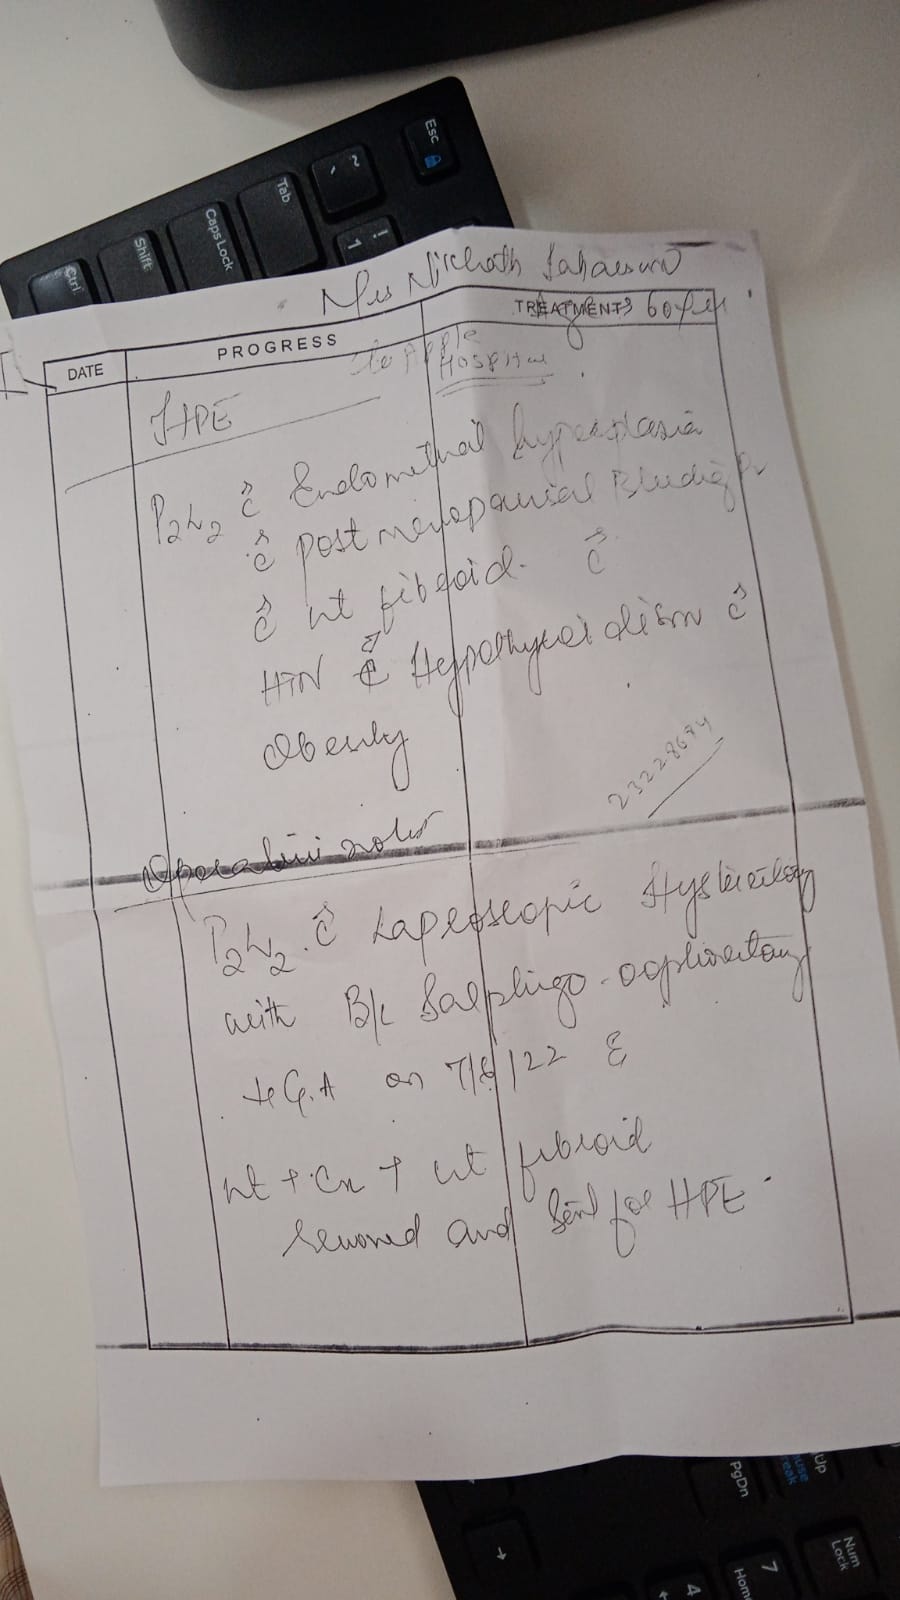 Esc
~
`
!
1
Tab
Caps Lock
Shift
Ctrl
Mrs
TREATMENTS 60
DATE
PROGRESS
Apple
Hospital
HPE
P2L2 c̄ Endometrial hyperplasia
c̄ post menopausial Bleeding
c̄ ut fibroid. c̄
HTN c̄ Hypothyroidism c̄
Obesity
23228694
Operative notes
P2L2 . c̄ Laproscopic
with B/L Salphingo-oophorectomy
G.A on 7/8/22
ut + Cx + ut fibroid
removed and sent for HPE.
PgDn
Up
Num
Lock
7
Home
4